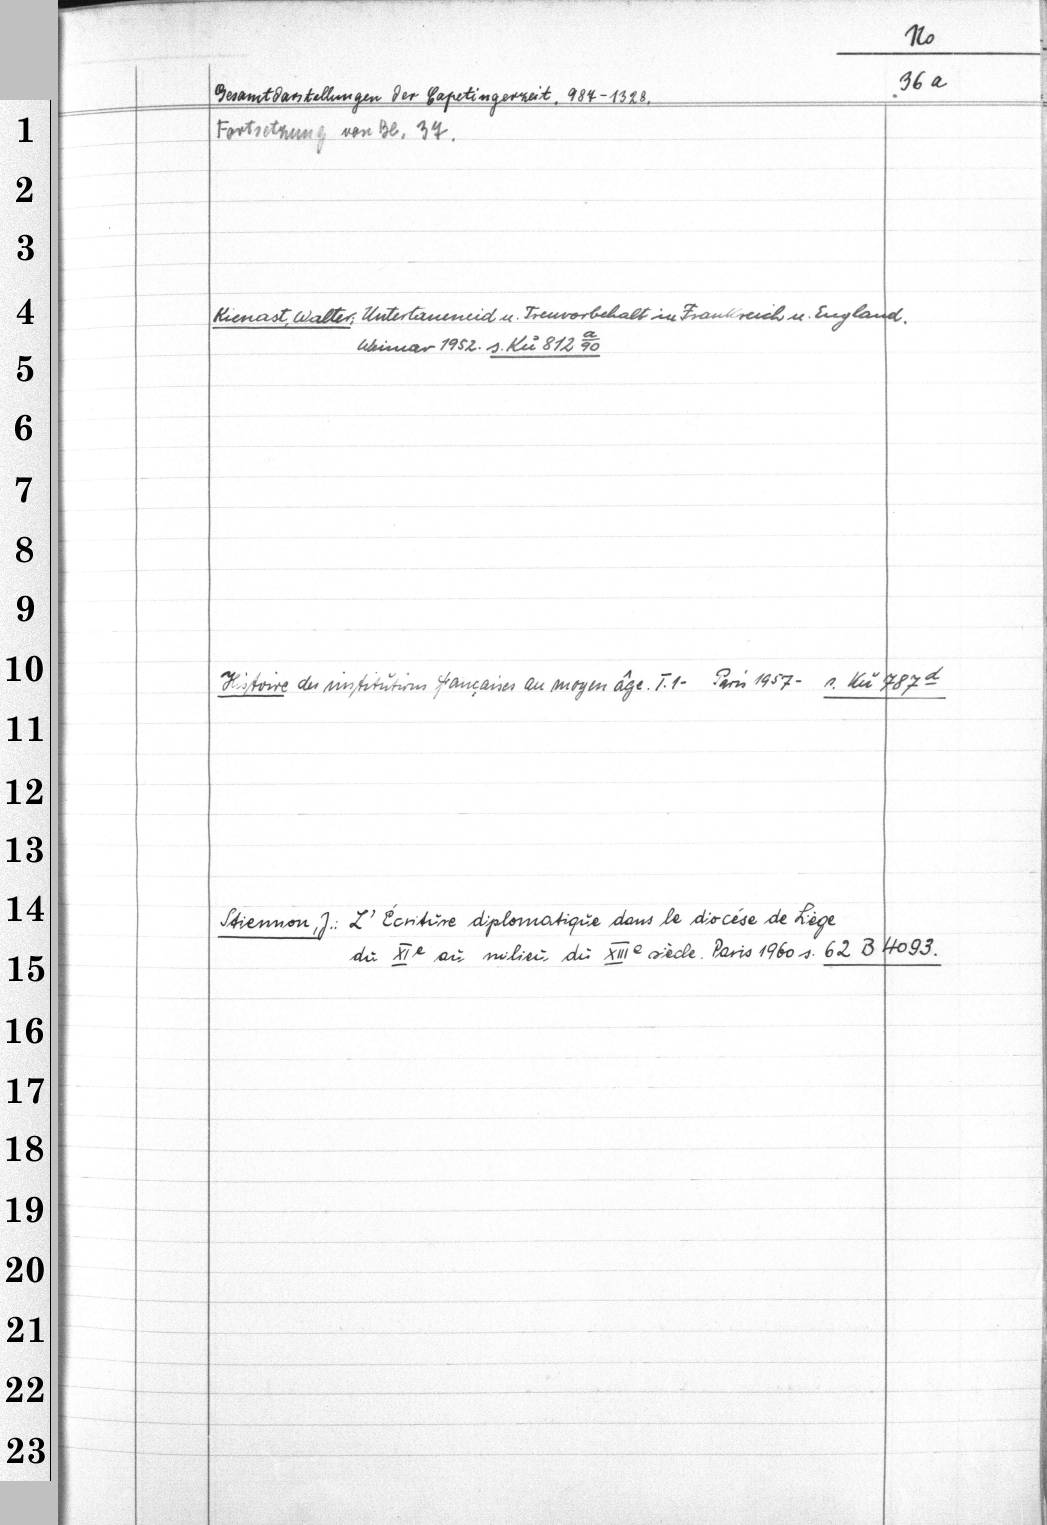 No
36 a
Gesamtdarstellungen der Capetingerzeit, 987-1328.
Fortsetzung von Bl. 37.
1
2
3
4
Kienast, Walter: Untertaneneid u. Treuvorbehalt in Frankreich u. England.
Weimar 1952. s. Kü 812 a/90
5
6
7
8
9
10
Histoire des institutions françaises au moyen âge. T.1- Paris 1957- s. Kü 787 d
11
12
13
14
Stiennon, J.: L' Écriture diplomatique dans le diocése de Liège
du XIe au milieu du XIIIe siècle. Paris 1960 s. 62 B 4093.
15
16
17
18
19
20
21
22
23